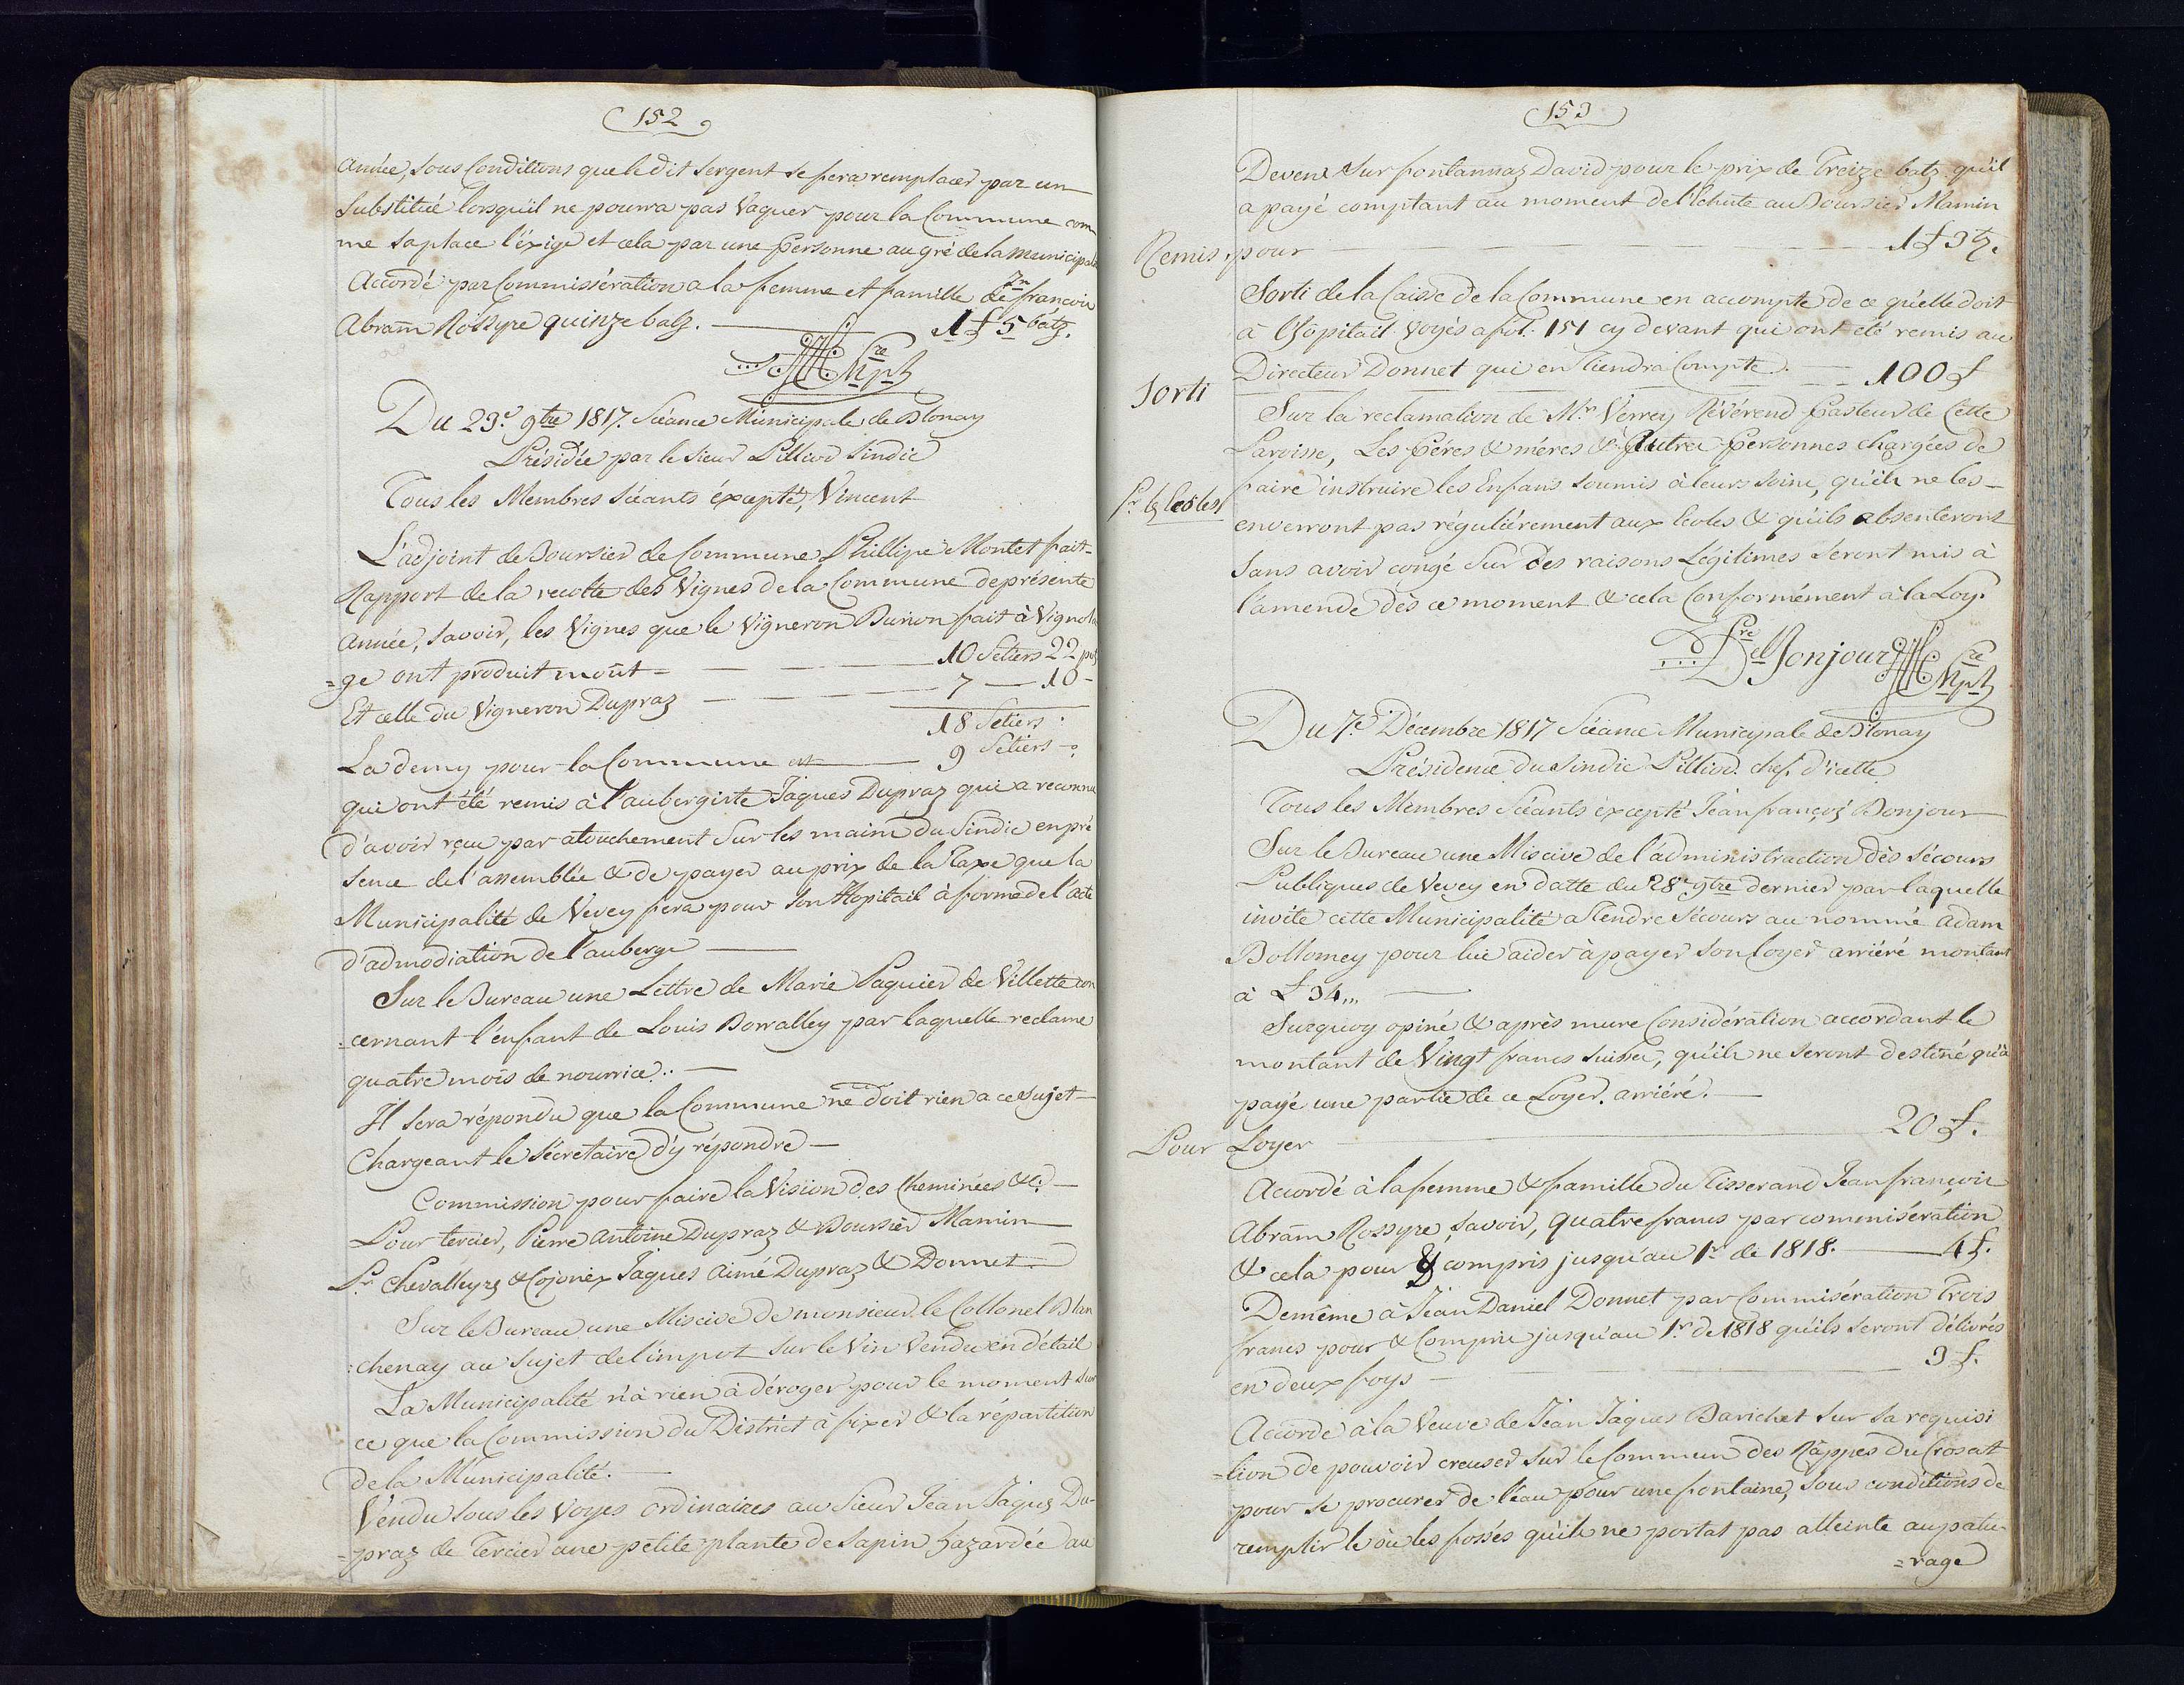 152
année, sous Conditions que le dit sergent se fera remplacer par un
Substitué lorsqu'il ne pourra pas Vaquer pour la Commune com
me sa place l'éxige et cela par une personne au gré de la Municipa
Accordé par Commisération a la femme et famille de Jn françois
Abram Rossyre quinze batz. 1 £ 5 batz.
Du 23e. 9bre 1817. Séance Municipale de Blonay
Présidée par le Sieur Pilliod Sindic
Tous les Membres Séants éxcepté, Vincent
L'adjoint de Boursier de Commune Phillipe Montet fait
Rapport de la recolte des Vignes de la Commune de présente
année, Savoir, les Vignes que le Vigneron Burion fait à Vigno
=ge ont produit moût 10 Setiers 22 pot
Et celle du Vigneron Dupraz 7 — 10 -
18 Setiers
La demy pour la Commune est 9 Setiers
qui ont été remis à l'aubergiste Jaques Dupraz qui a reconnu
d'avoir rçeu par atouchement Sur les mains du Sindic en pré
sence de l'assemblée & de payer au prix de la Taxe que la
Municipalité de Vevey fera pour son Hopitail à forme de l'acte
d'admodiation de l'auberge
Sur le Bureau une Lettre de Marie Paquier de Villette con
=cernant l'enfant de Louis Borralley par laquelle reclame
quatre mois de nourrice.
Il sera répondu que la Commune ne doit rien a ce Sujet
Chargeant le Sécretaire d'y répondre
Commission pour faire la Vision des Cheminées &c.
Pour tercier, Pierre Antoine Dupraz & Boursier Mamin
Pr. Chevalleyre & Cojonex Jaques Aimé Dupraz & Donnet
Sur le Bureau une Miscive de monsieur le Collonel Blan
=chenay au Sujet de l'impot sur le Vin Vendu en détail
La Municipalité n'a rien à déroger pour le moment Sur
ce que la Commission du District à fixer & la répartition
de la Municipalité.
Vendu sous les Voyes ordinaires au Sieur Jean Jaques Du-
=praz de Tercier une petite plante de Sapin hazardée au
153
Devens Sur fontannaz David pour le prix de Treize batz qu'il
a payé comptant au moment de l'Echute au Boursier Mamin
Remis pour 1 £ 3 bz.
Sorti de la Caisse de la Commune en accompte de ce qu'elle doit
à l'hopitail Voyés a fol. 151 cy devant qui ont été remis au
Directeur Donnet qui en Tiendra Compte.
Sorti 100 £
Sur la reclamation de Mr. Verrey Révérend Pasteur de Cette
Paroisse, Les Péres & méres & Autres Personnes chargées de
Pr. ls Ecoles
faire instruire les Enfans Soumis à leurs Soins, qu'ils ne les
enverront pas réguliérement aux Ecoles & qu'ils absenteront
Sans avoir congé Sur des raisons Légitimes Seront mis à
l'amende dès ce moment & cela Conformément à la Loy.
Bonjour
Du 7e. Décembre 1817 Séance Municipale de Blonay
Présidence du Sindic Pilliod. chef d'icelle
Tous les Membres Séants éxcepté Jean françois Bonjour
Sur le Bureau une Miscive de l'administraction dès Sécours
Publiques de Vevey en datte du 28e 9bre dernier par laquelle
invite cette Municipalité a Tendre Sécours au nommé Adam
Bollomey pour lui aider à payer son loyer arriéré montant
à £ 34,,,
Surquoy opiné & après mure Considération accordant le
montant de Vingt francs Suisses, qu'ils ne seront destiné qu'à
payé une partie de ce Loyer. arriéré.
Pour Loyer 20 £.
Accordé à la femme & famille du Tisserand Jean françois
Abram Rossyre, Savoir, quatre francs par commisération
& cela pour & compris jusqu'au 1r de 1818. 4 £.
De même à Jean Daniel Donnet par Commisération Trois
francs pour & Compris jusqu'au 1r de 1818 qu'ils seront délivrés
en deux foys 3 £.
Accordé à la Veuve de Jean Jaques Barichet Sur sa requisi
=tion de pouvoir creuser Sur le Commun des Rappes du Crosat
pour se procurer de l'eau pour une fontaine, Sous conditions de
remplir le où les fossés qu'ils ne portat pas atteinte au patu-
=rage